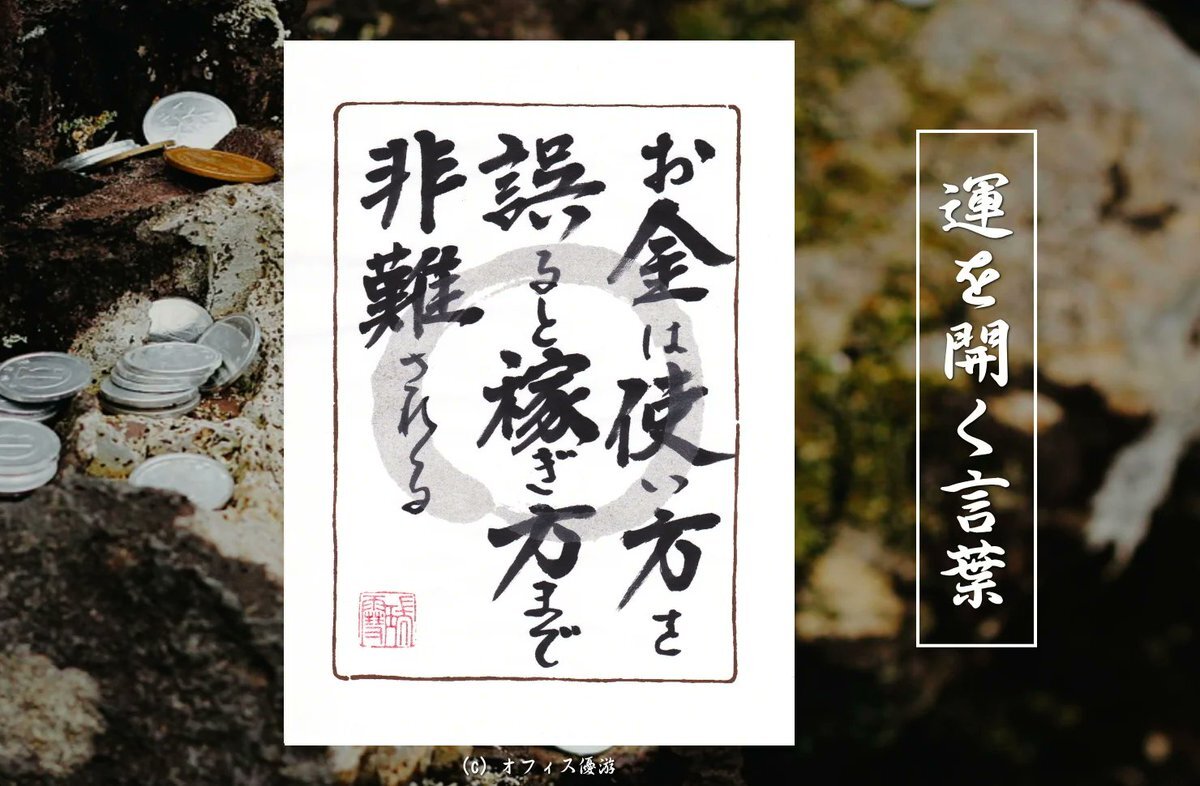 運を開く言葉
お金は使い方を
誤ると稼ぎ方まで
非難される
(C) オフィス優游